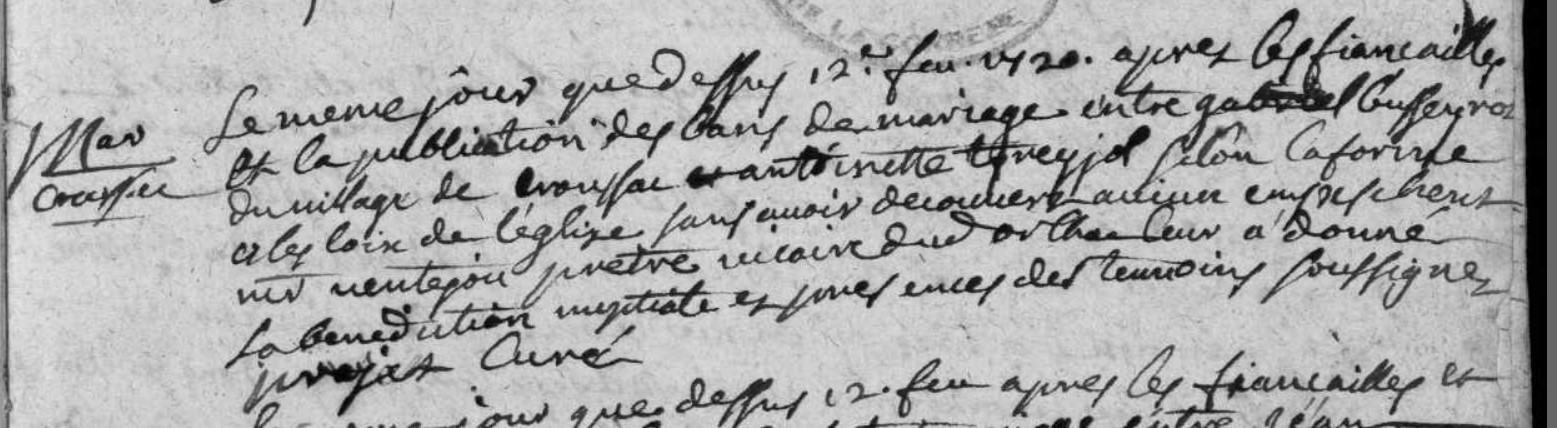 DE LA CORREZE
Mar
croussac
Le meme jour que dessus 12e feu. 1720. apres les fiancailles
et la publication des bans de mariage entre gabriel busseyrou
du village de croussac et antoinette treyjol selon la forme
et les loix de l'eglise sans auoir decouuert aucun empeschemt
mr uentejou pretre uicaire dud leur a donné
la benediction nuptiale es presences des temoins soussignez
projet Curé
Le meme jour que dessus 12. feu apres les fiancailles et
entre Jean